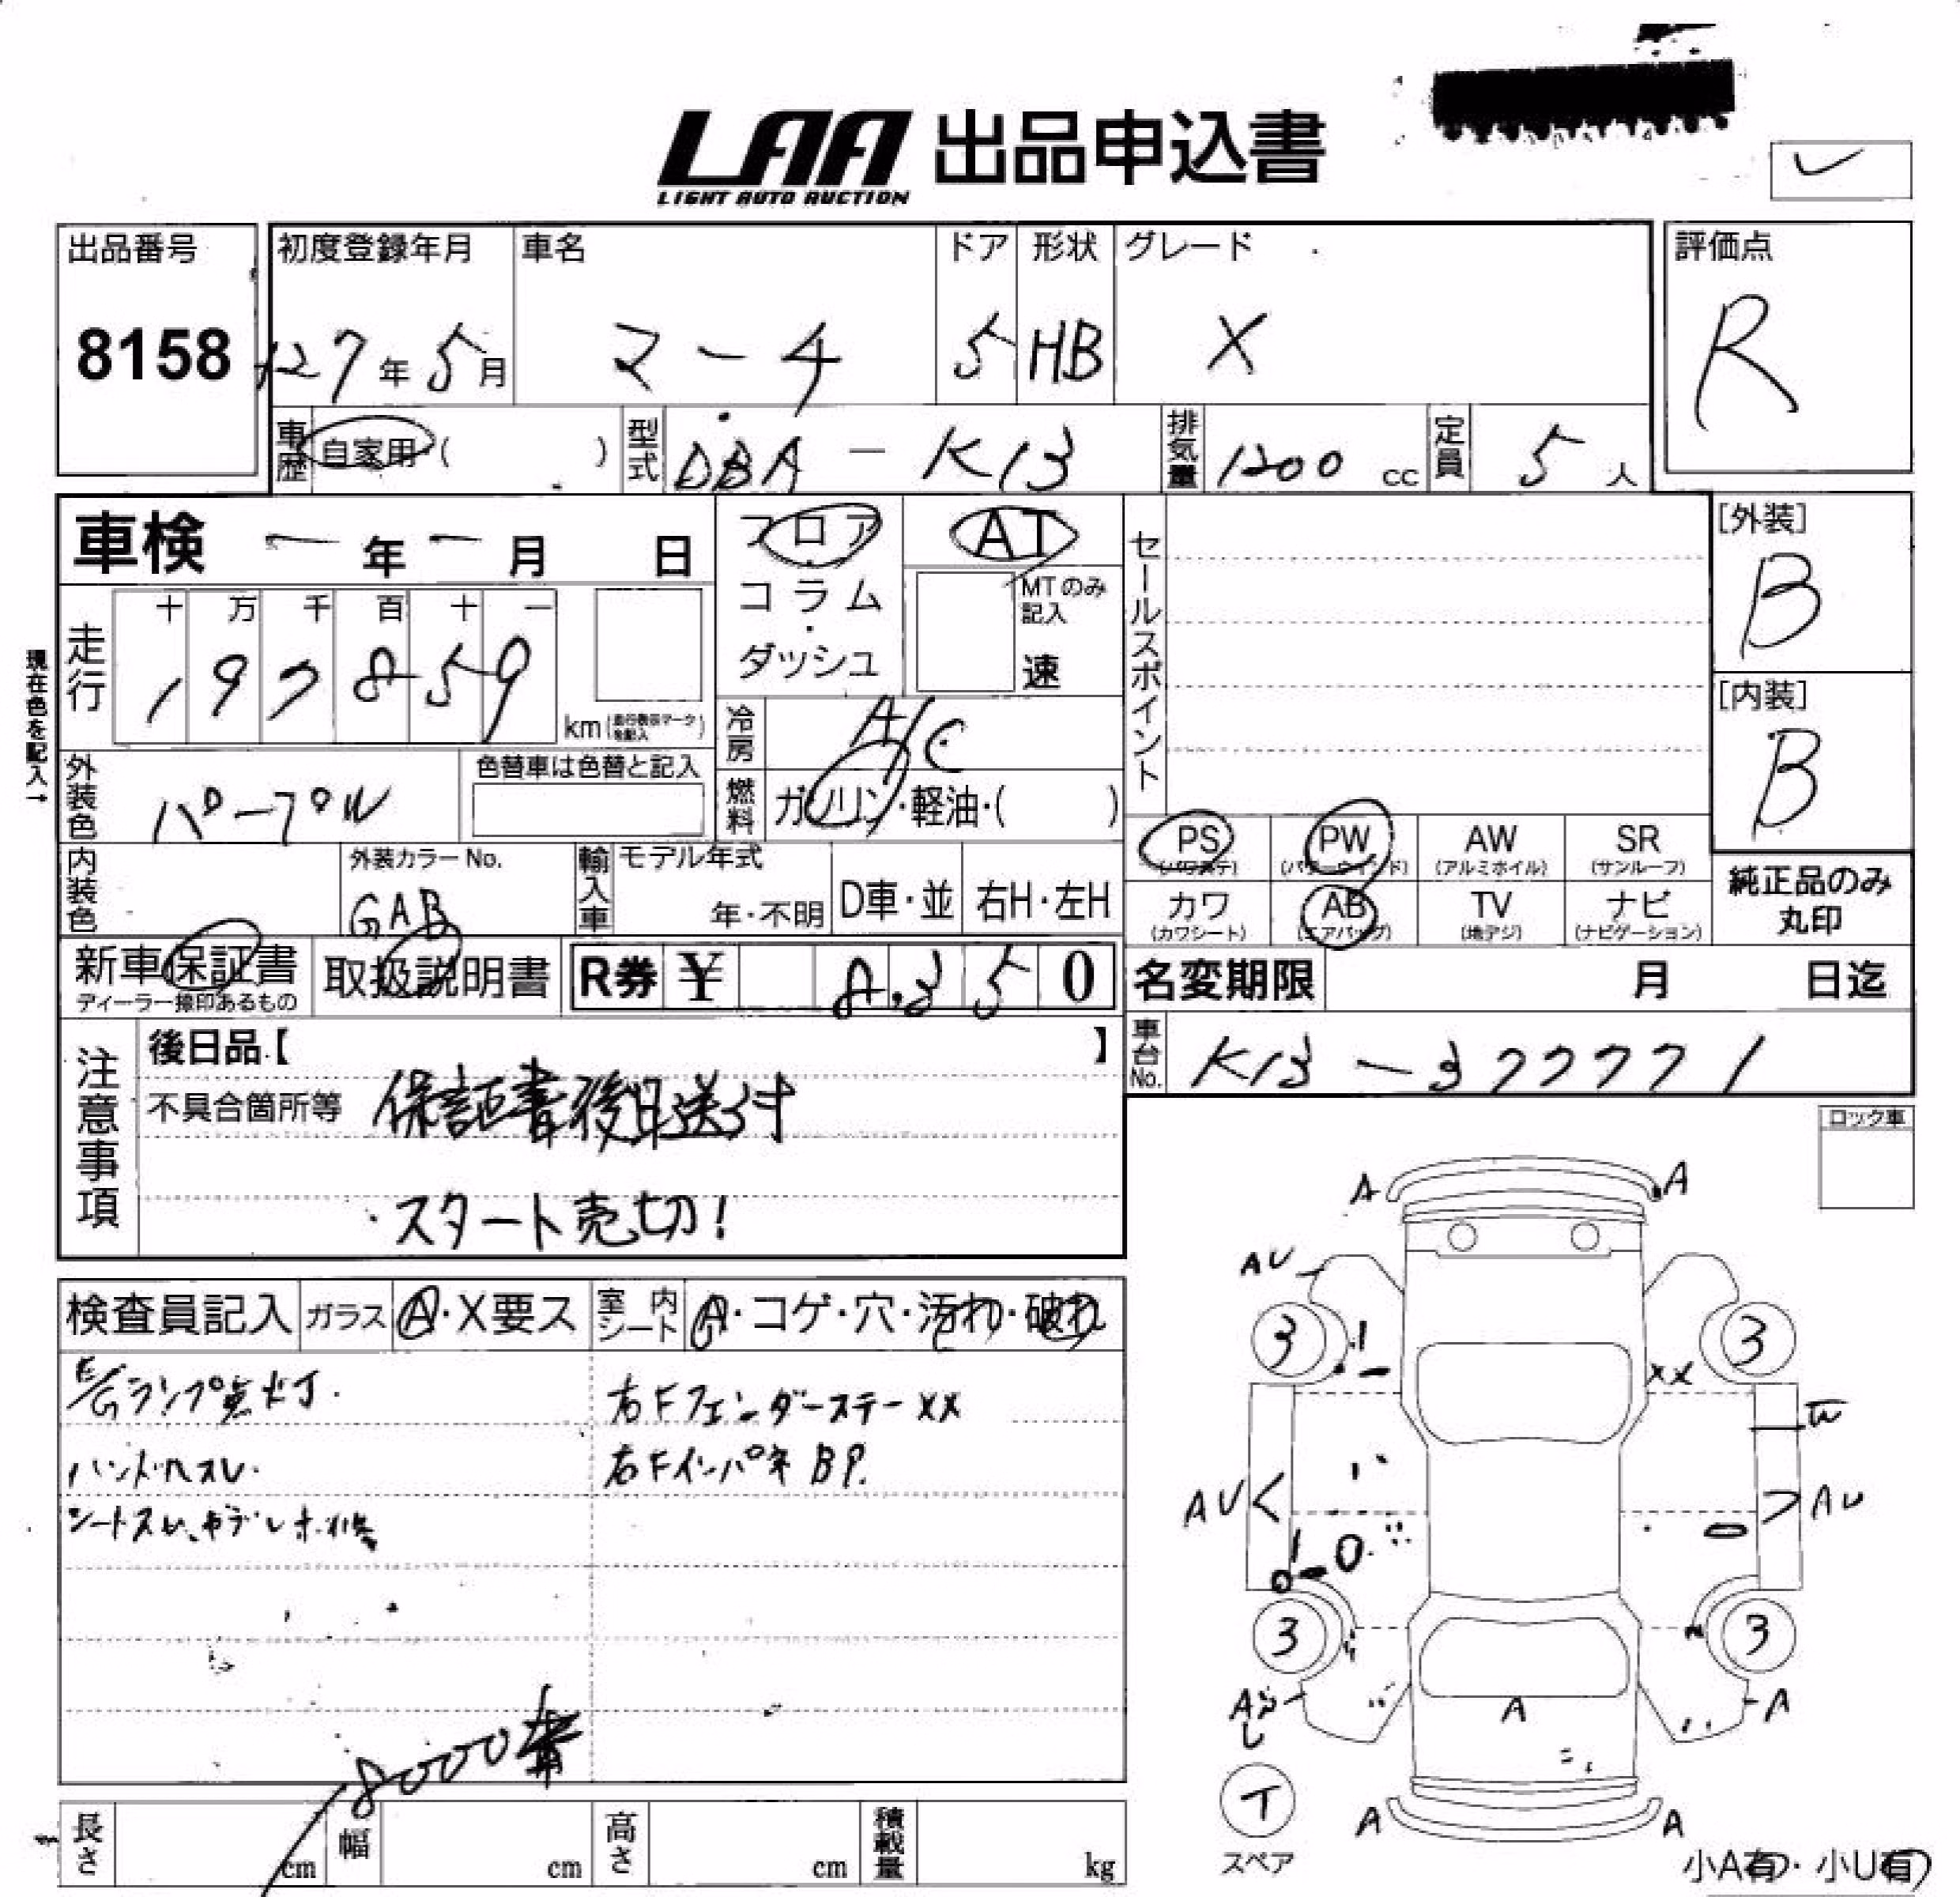 LAA 出品申込書
LIGHT AUTO AUCTION
出品番号 初度登録年月 車名 ドア 形状 グレード 評価点
8158 H27年5月 マーチ 5 HB X R
車歴 自家用・( ) 型式 DBA-K13 排気量 1200 cc 定員 5人
車検 - 年 - 月 日 フロア・コラム・ダッシュ AT セールスポイント [外装]
MTのみ記入 速 B
現在色を記入→
走行 十 万 千 百 十 一
1 9 7 8 5 9 km [内装]
冷房 A/C B
外装色 パープル 色替車は色替と記入 燃料 ガソリン・軽油・( )
PS PW AW SR
(パワステ) (パワーウィンド) (アルミホイル) (サンルーフ)
内装色 外装カラーNo. GAB 輸入車 モデル年式 年・不明 D車・並 右H・左H
カワ AB TV ナビ 純正品のみ
(カワシート) (エアバッグ) (地デジ) (ナビゲーション) 丸印
新車保証書 取扱説明書 R券 ¥ 8,350 名変期限 月 日迄
ディーラー捺印あるもの
注意事項 後日品【 】 車台No. K13-377771
不具合箇所等 保証書後日送付
スタート売切!
ロック車
検査員記入 ガラス A・X要ス 室内シート A・コゲ・穴・汚れ・破れ
E/Gランプ点灯. 右Fフェンダーステー XX
ハンドルスレ. 右Fインパネ BP.
A A
AU
3 3
XX
W
AU AU
3 3
A A
A
8000番
T
スペア
A A
長さ cm 幅 cm 高さ cm 積載量 kg
小A有・小U有